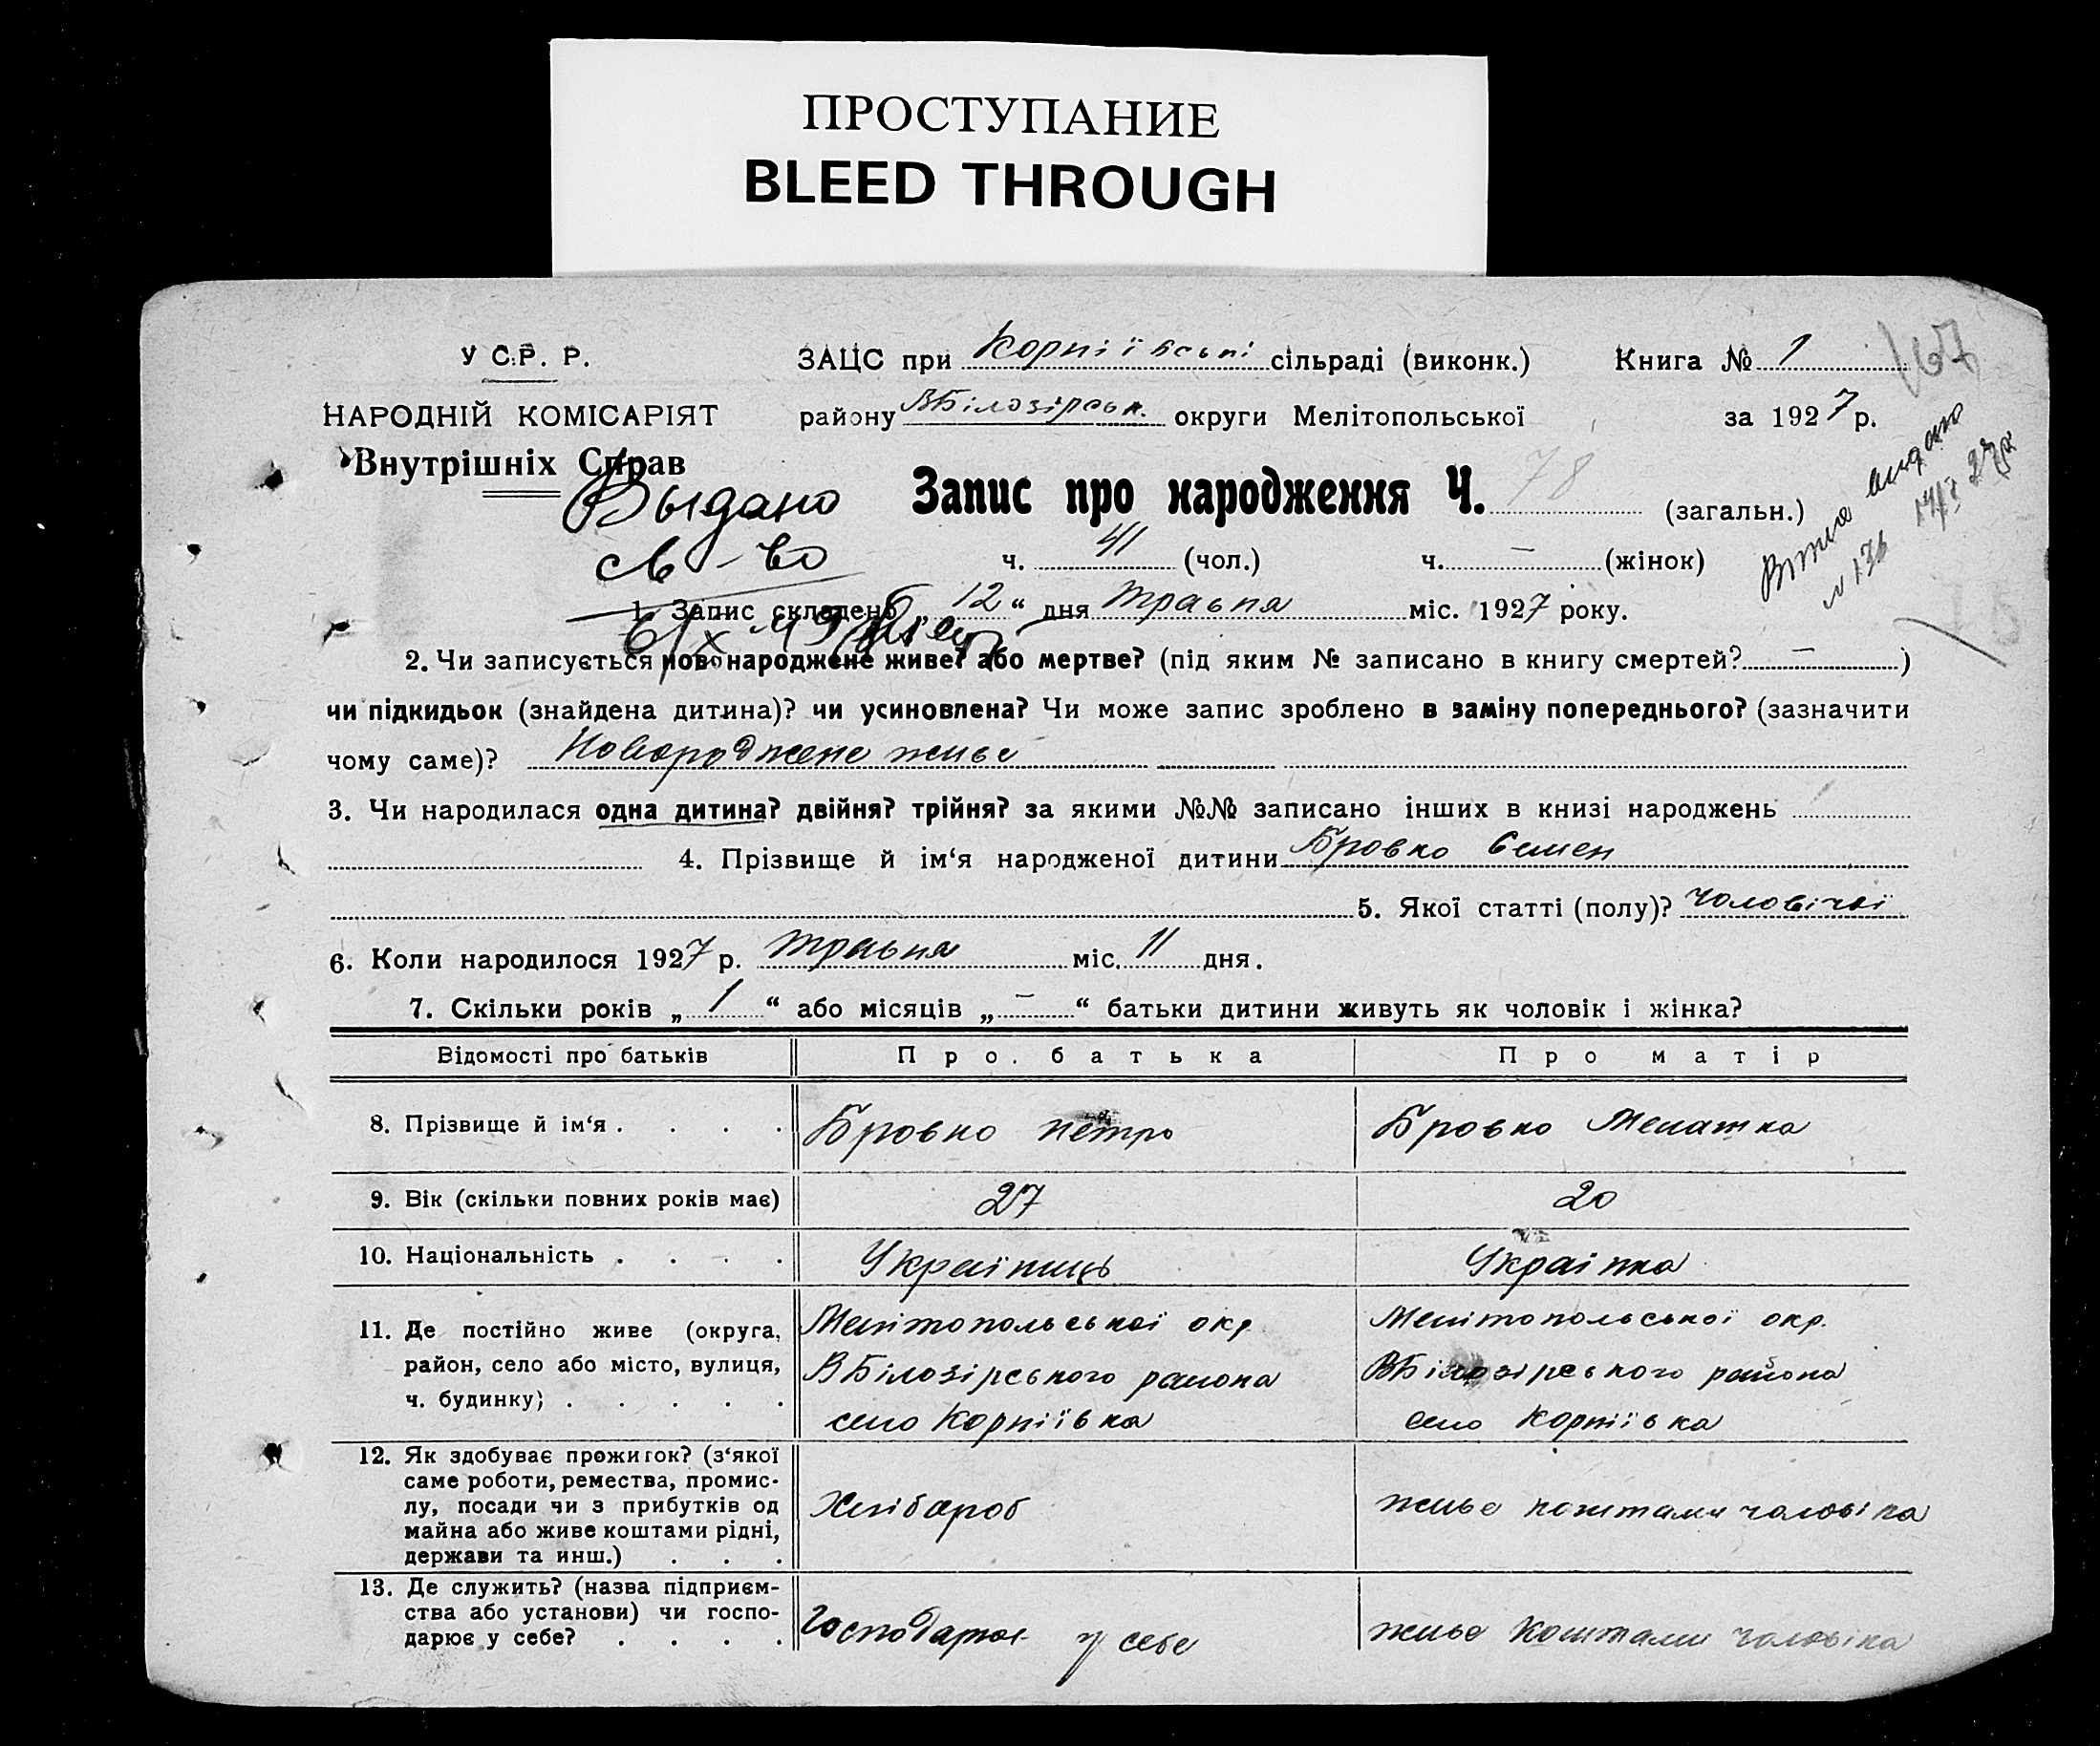 ПРОСТУПАНИЕ
BLEED THROUGH
У С.Р. Р.
НАРОДНІЙ КОМІСАРІЯТ
Внутрішніх Справ
ЗАЦС при Корніївські сільраді (виконк.) Книга № 1
167
району ВБілозірськ. округи Мелітопольської за 1927 р.
Выдано
св-во
Запис про народження Ч. 78 (загальн.)
Витяг видано
ч. 41 (чол.) ч. — (жінок)
1. Запис складено „12“ дня Травня міс. 1927 року.
2. Чи записується новонароджене живе? або мертве? (під яким № записано в книгу смертей? — )
чи підкидьок (знайдена дитина)? чи усиновлена? Чи може запис зроблено в заміну попереднього? (зазначити
чому саме)? Новороджене живе
3. Чи народилася одна дитина? двійня? трійня? за якими №№ записано інших в книзі народжень
4. Прізвище й ім‘я народженої дитини Бровко Семен
5. Якої статті (полу)? Чоловічої
6. Коли народилося 1927 р. Травня міс. 11 дня.
7. Скільки років „ 1 “ або місяців „ — “ батьки дитини живуть як чоловік і жінка?
Відомості про батьків Про батька Про матір
8. Прізвище й ім‘я . . . . Бровко Петро Бровко Мелашка
9. Вік (скільки повних років має) 27 20
10. Національність . . . . Українець Українка
11. Де постійно живе (округа, Мелітопольської окр. Мелітопольської окр.
район, село або місто, вулиця, ВБілозірського района ВБілозірського района
ч. будинку) . . . . . село Корніївка село Корніївка
12. Як здобуває прожиток? (з‘якої
саме роботи, ремества, промис-
лу, посади чи з прибутків од Хлібороб живе коштами чоловіка
майна або живе коштами рідні,
держави та инш.) . . .
13. Де служить? (назва підприєм-
ства або установи) чи госпо- Господарює у себе живе коштами чоловіка
дарює у себе? . . . .